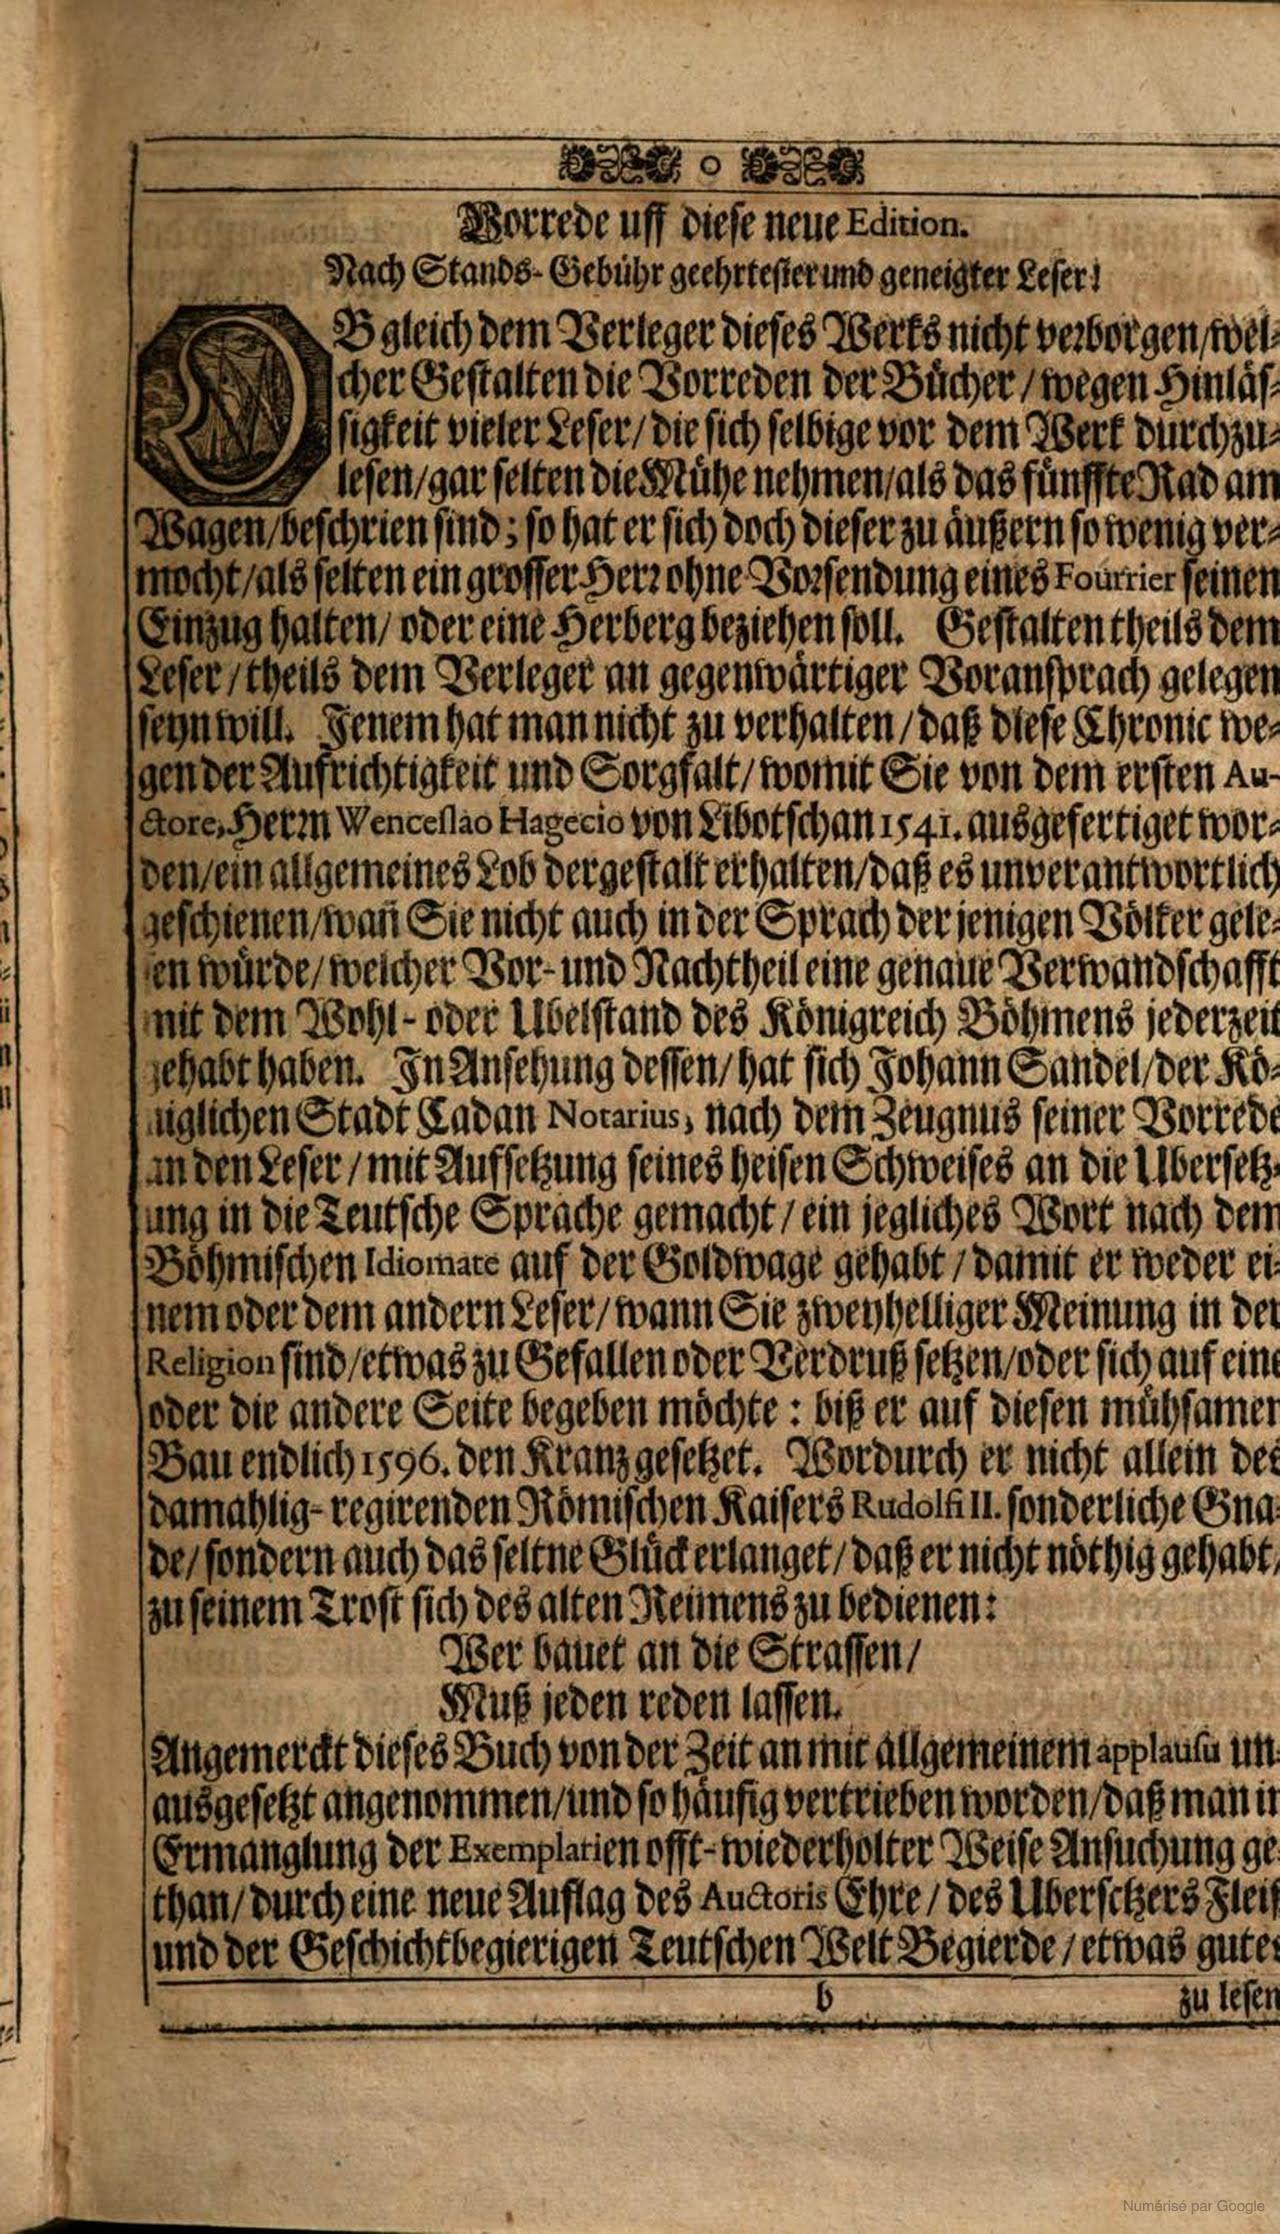 Vorrede uff diese neue Edition.
Nach Stands-Gebühr geehrtester und geneigter Leser!
OB gleich dem Verleger dieses Werks nicht verborgen/wel-
cher Gestalten die Vorreden der Bücher / wegen Hinläs-
sigkeit vieler Leser/ die sich selbige vor dem Werk durchzu-
lesen/gar selten die Mühe nehmen/als das fünffte Rad am
Wagen/beschrien sind; so hat er sich doch dieser zu äußern so wenig ver-
mocht/als selten ein grosser Herr ohne Vorsendung eines Fourrier seinen
Einzug halten/ oder eine Herberg beziehen soll. Gestalten theils dem
Leser / theils dem Verleger an gegenwärtiger Voransprach gelegen
seyn will. Jenem hat man nicht zu verhalten / daß diese Chronic we-
gen der Aufrichtigkeit und Sorgfalt/ womit Sie von dem ersten Au-
ctore, Herrn Wenceslao Hagecio von Libotschan 1541. ausgefertiget wor-
den/ein allgemeines Lob dergestalt erhalten/daß es unverantwortlich
geschienen/wañ Sie nicht auch in der Sprach der jenigen Völker gele-
en würde/ welcher Vor- und Nachtheil eine genaue Verwandschafft
mit dem Wohl- oder Ubelstand des Königreich Böhmens jederzeit
gehabt haben. In Ansehung dessen/ hat sich Johann Sandel/der Kö-
niglichen Stadt Cadan Notarius, nach dem Zeugnus seiner Vorrede
an den Leser / mit Aufsetzung seines heisen Schweises an die Ubersetz-
ung in die Teutsche Sprache gemacht / ein jegliches Wort nach dem
Böhmischen Idiomate auf der Goldwage gehabt / damit er weder ei-
nem oder dem andern Leser/ wann Sie zweyhelliger Meinung in der
Religion sind/etwas zu Gefallen oder Verdruß setzen/oder sich auf eine
oder die andere Seite begeben möchte : biß er auf diesen mühsamen
Bau endlich 1596. den Kranz gesetzet. Wordurch er nicht allein des
damahlig-regirenden Römischen Kaisers Rudolfi II. sonderliche Gna-
de/ sondern auch das seltne Glück erlanget/ daß er nicht nöthig gehabt/
zu seinem Trost sich des alten Reimens zu bedienen:
Wer bauet an die Strassen/
Muß jeden reden lassen.
Angemerckt dieses Buch von der Zeit an mit allgemeinem applausu un-
ausgesetzt angenommen/und so häufig vertrieben worden/daß man in
Ermanglung der Exemplarien offt-wiederholter Weise Ansuchung ge-
than/ durch eine neue Auflag des Auctoris Ehre / des Ubersetzers Fleiß
und der Geschichtbegierigen Teutschen Welt Begierde / etwas gutes
b
zu lesen
Numérisé par Google